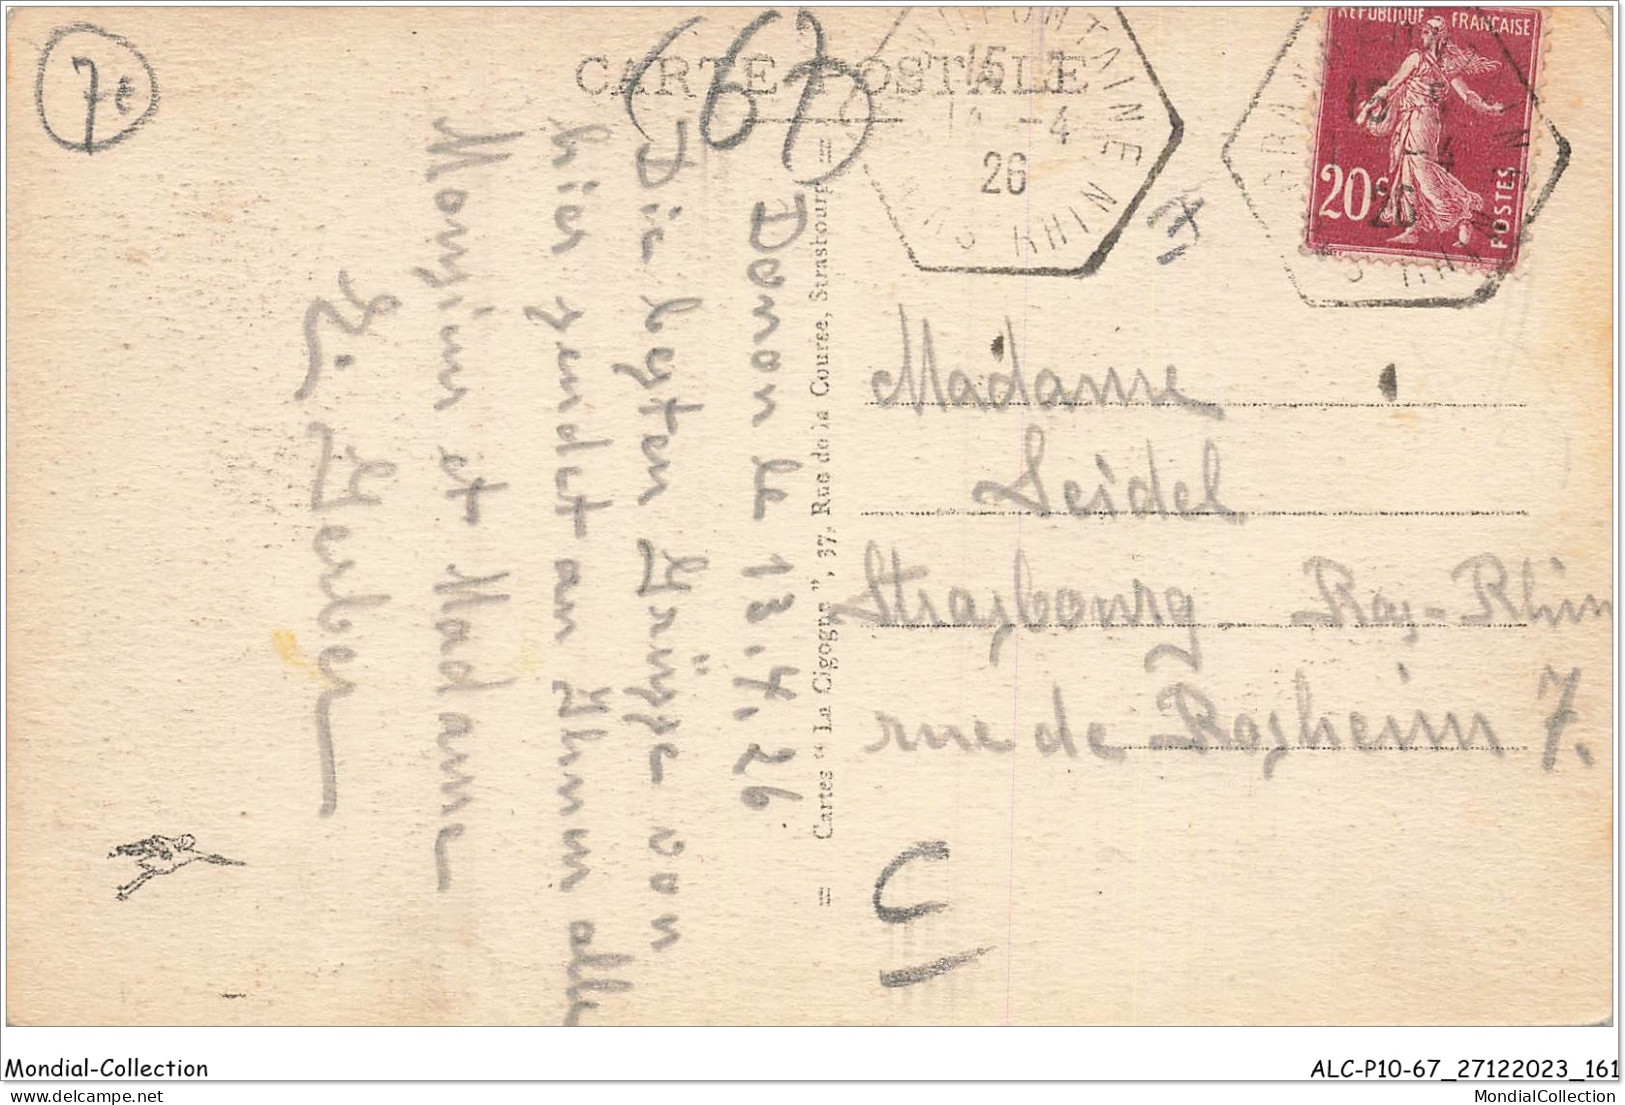 7e
(67)
CARTE POSTALE
Donon le 13.4.26
Die lezten Grüsse von
hier sendet an Ihnen alle
Monsieur et Madame
E. Gerber
= Cartes "La Cigogne", 37, Rue de la Course, Strasbourg =
15
14 -4
26
RHIN
RÉPUBLIQUE FRANÇAISE
20c
POSTES
15
-4
26
Madame
Seidel
Strasbourg Bas-Rhin
rue de Rosheim 7.
Mondial-Collection
ALC-P10-67_27122023_161
MondialCollection
MondialCollection.com